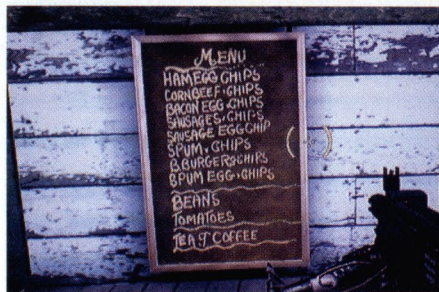 MENU
HAM EGG CHIPS
CORNBEEF, CHIPS
BACON EGG, CHIPS
SAUSAGES, CHIPS
SAUSAGE EGG CHIP
SPUM, CHIPS
B.BURGERS CHIPS
SPUM EGG, CHIPS
BEANS
TOMATOES
TEA & COFFEE